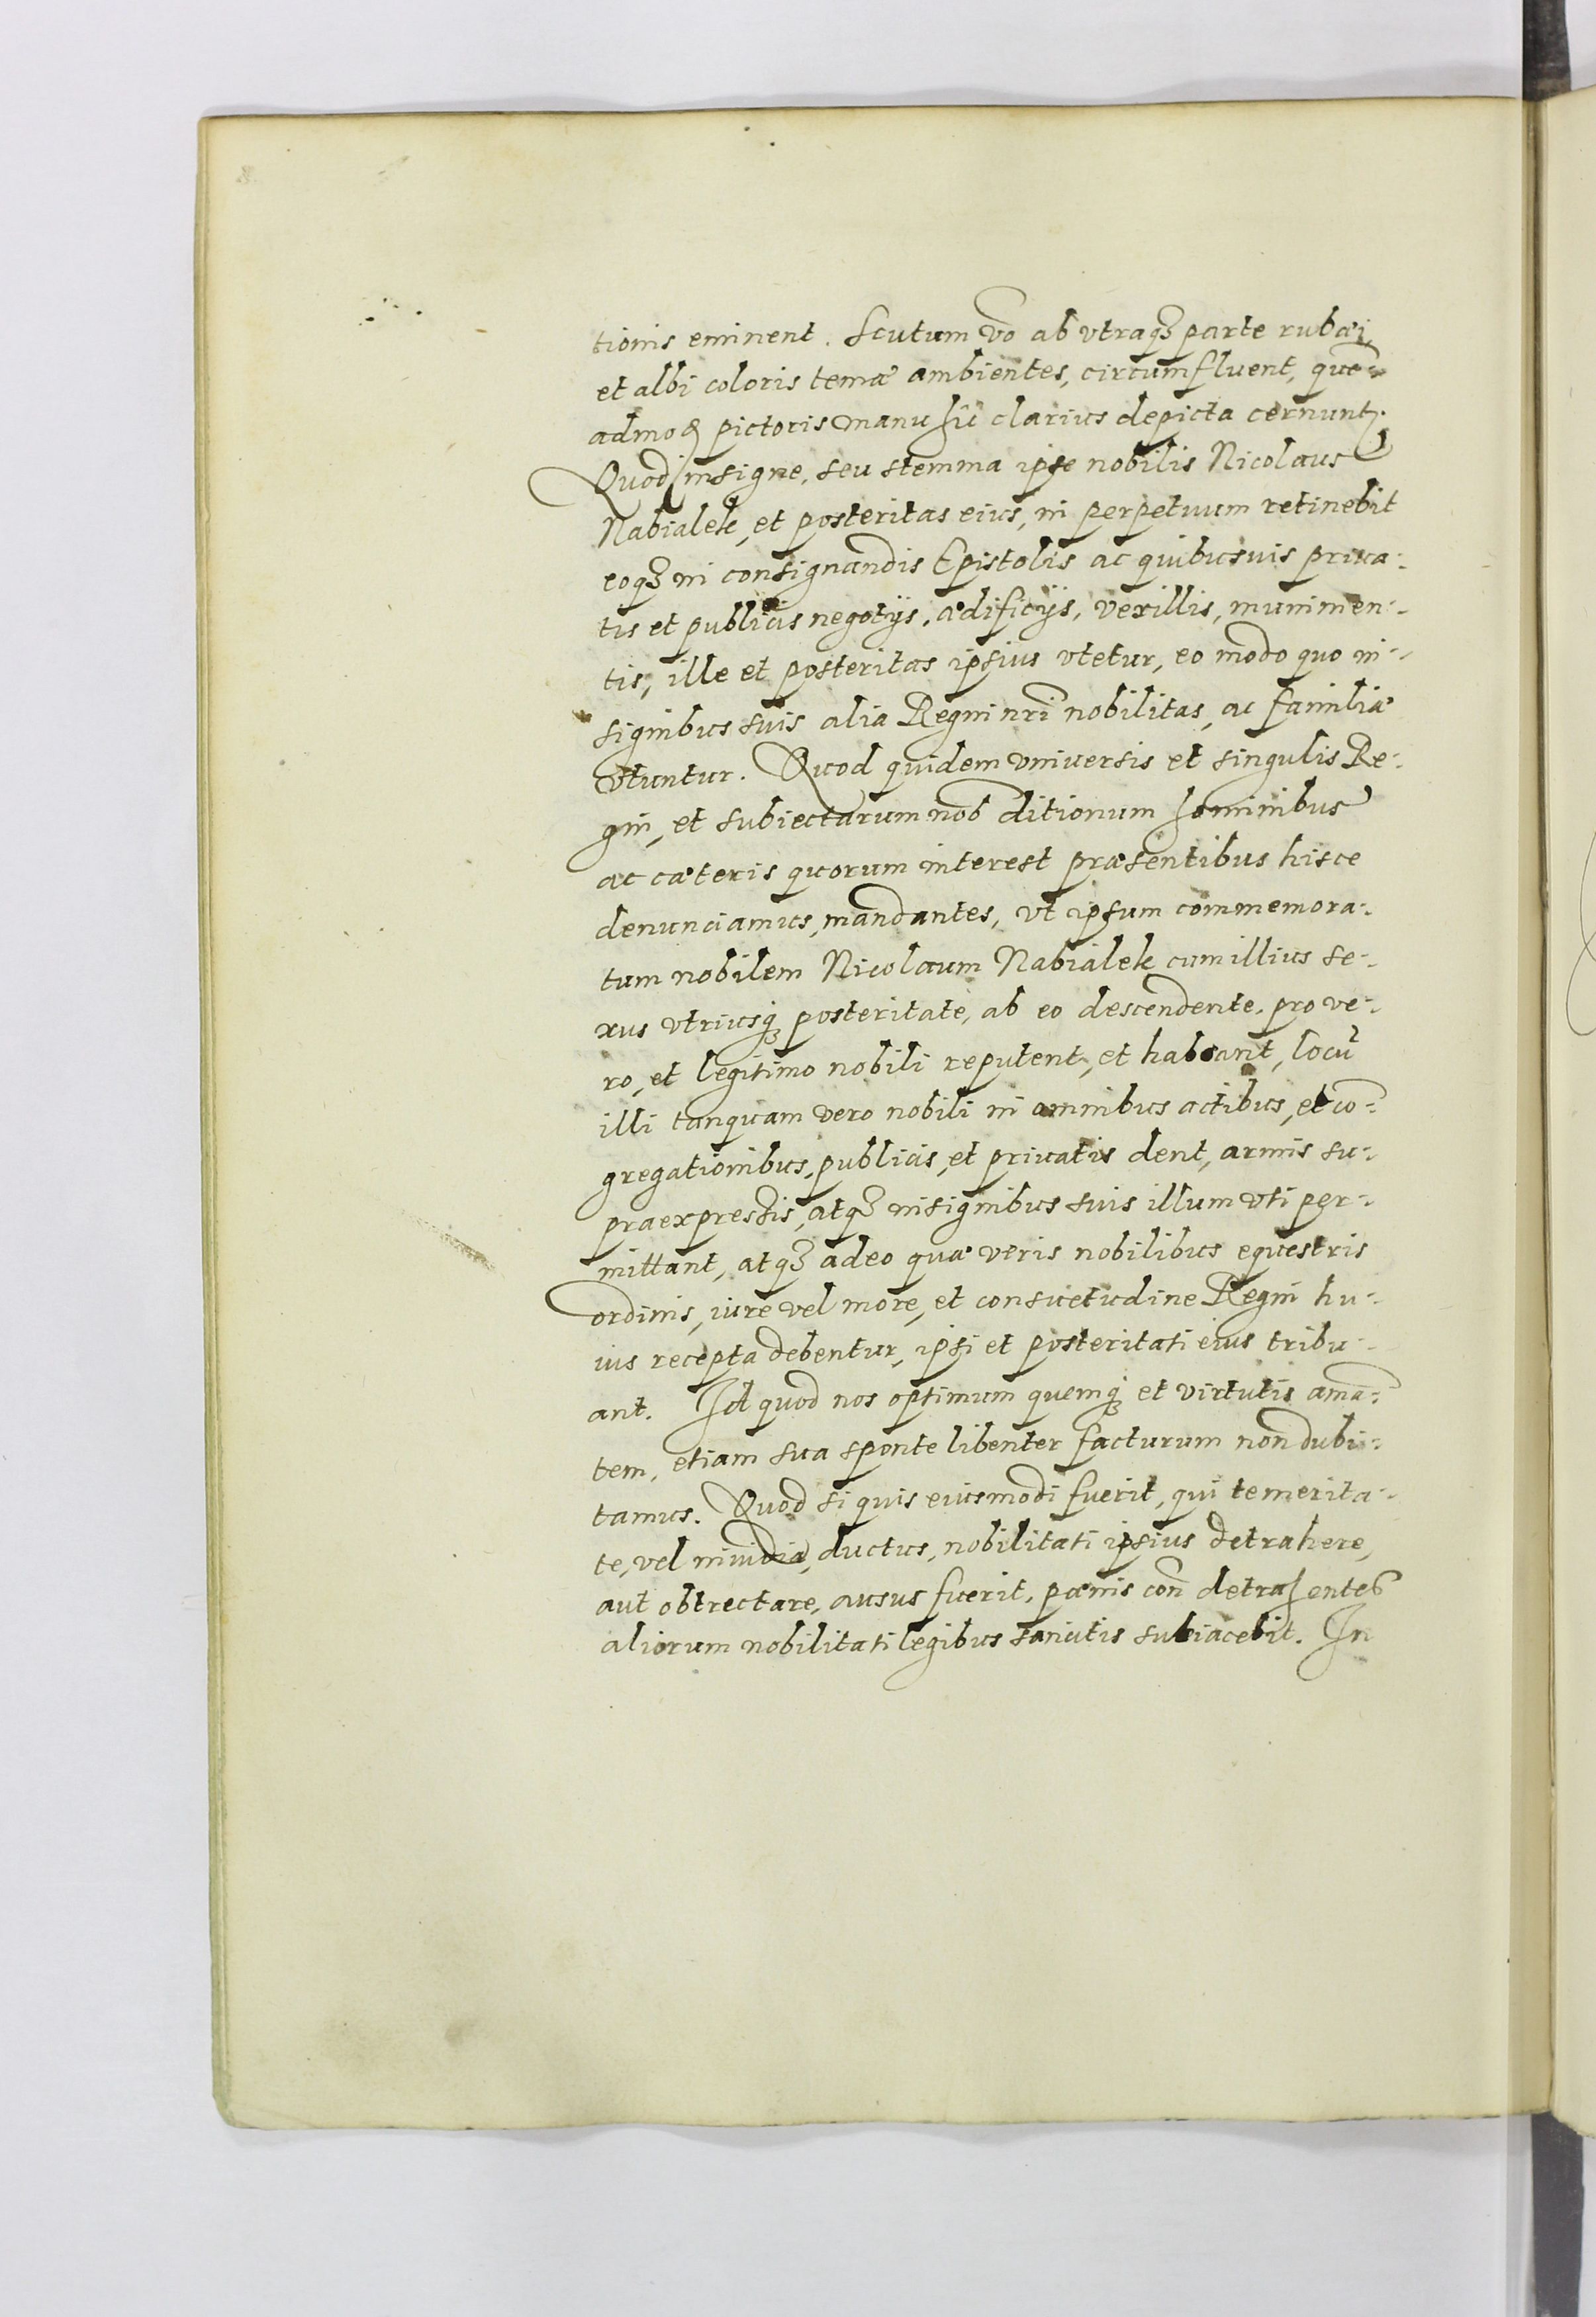 tionis eminent. Scutum vo ab vtraqȝ parte rubæi,
et albi coloris teniæ ambientes, circumfluent, quē=
admoꝗ pictoris manu hîc clarius depicta cernuntꝛ.
Quod insigne, seu stemma ipse nobilis Nicolaus
Nabialek, et posteritas eius, in perpetuum retinebit
eoqȝ in consignandis Epistolis ac quibusuis priua=
tis et publicis negotijs, ædificijs, vexillis, munimen=
tis, ille et posteritas ipsius vtetur, eo modo quo in=
signibus suis alia Regni nrī nobilitas, ac familiæ
vtuntur. Quod quidem vniuersis et singulis Re=
gni, et subiectarum nob ditionum hominibus
ac cæteris quorum interest præsentibus hisce
denunciamus, mandantes, vt ipsum commemora=
tum nobilem Nicolaum Nabialek cum illius se=
xus vtriusqȝ posteritate, ab eo descendente, pro ve=
ro, et legitimo nobili reputent, et habeant, locū
illi tanquam vero nobili in omnibus actibus, et cō=
gregationibus, publicis, et priuatis dent, armis su=
praexpressis, atqȝ insignibus suis illum vti per=
mittant, atqȝ adeo quæ veris nobilibus equestris
ordinis, iure vel more, et consuetudine Regni hu=
ius recepta debentur, ipsi et posteritati eius tribu=
ant. Id quod nos optimum quemqȝ et virtutis amā=
tem, etiam sua sponte libenter facturum non dubi=
tamus. Quod si quis eiusmodi fuerit, qui temerita=
te, vel inuidia, ductus, nobilitati ipsius detrahere,
aut obtrectare, ausus fuerit, pœnis con̄ detrahentes
aliorum nobilitati legibus sancitis subiacebit. In